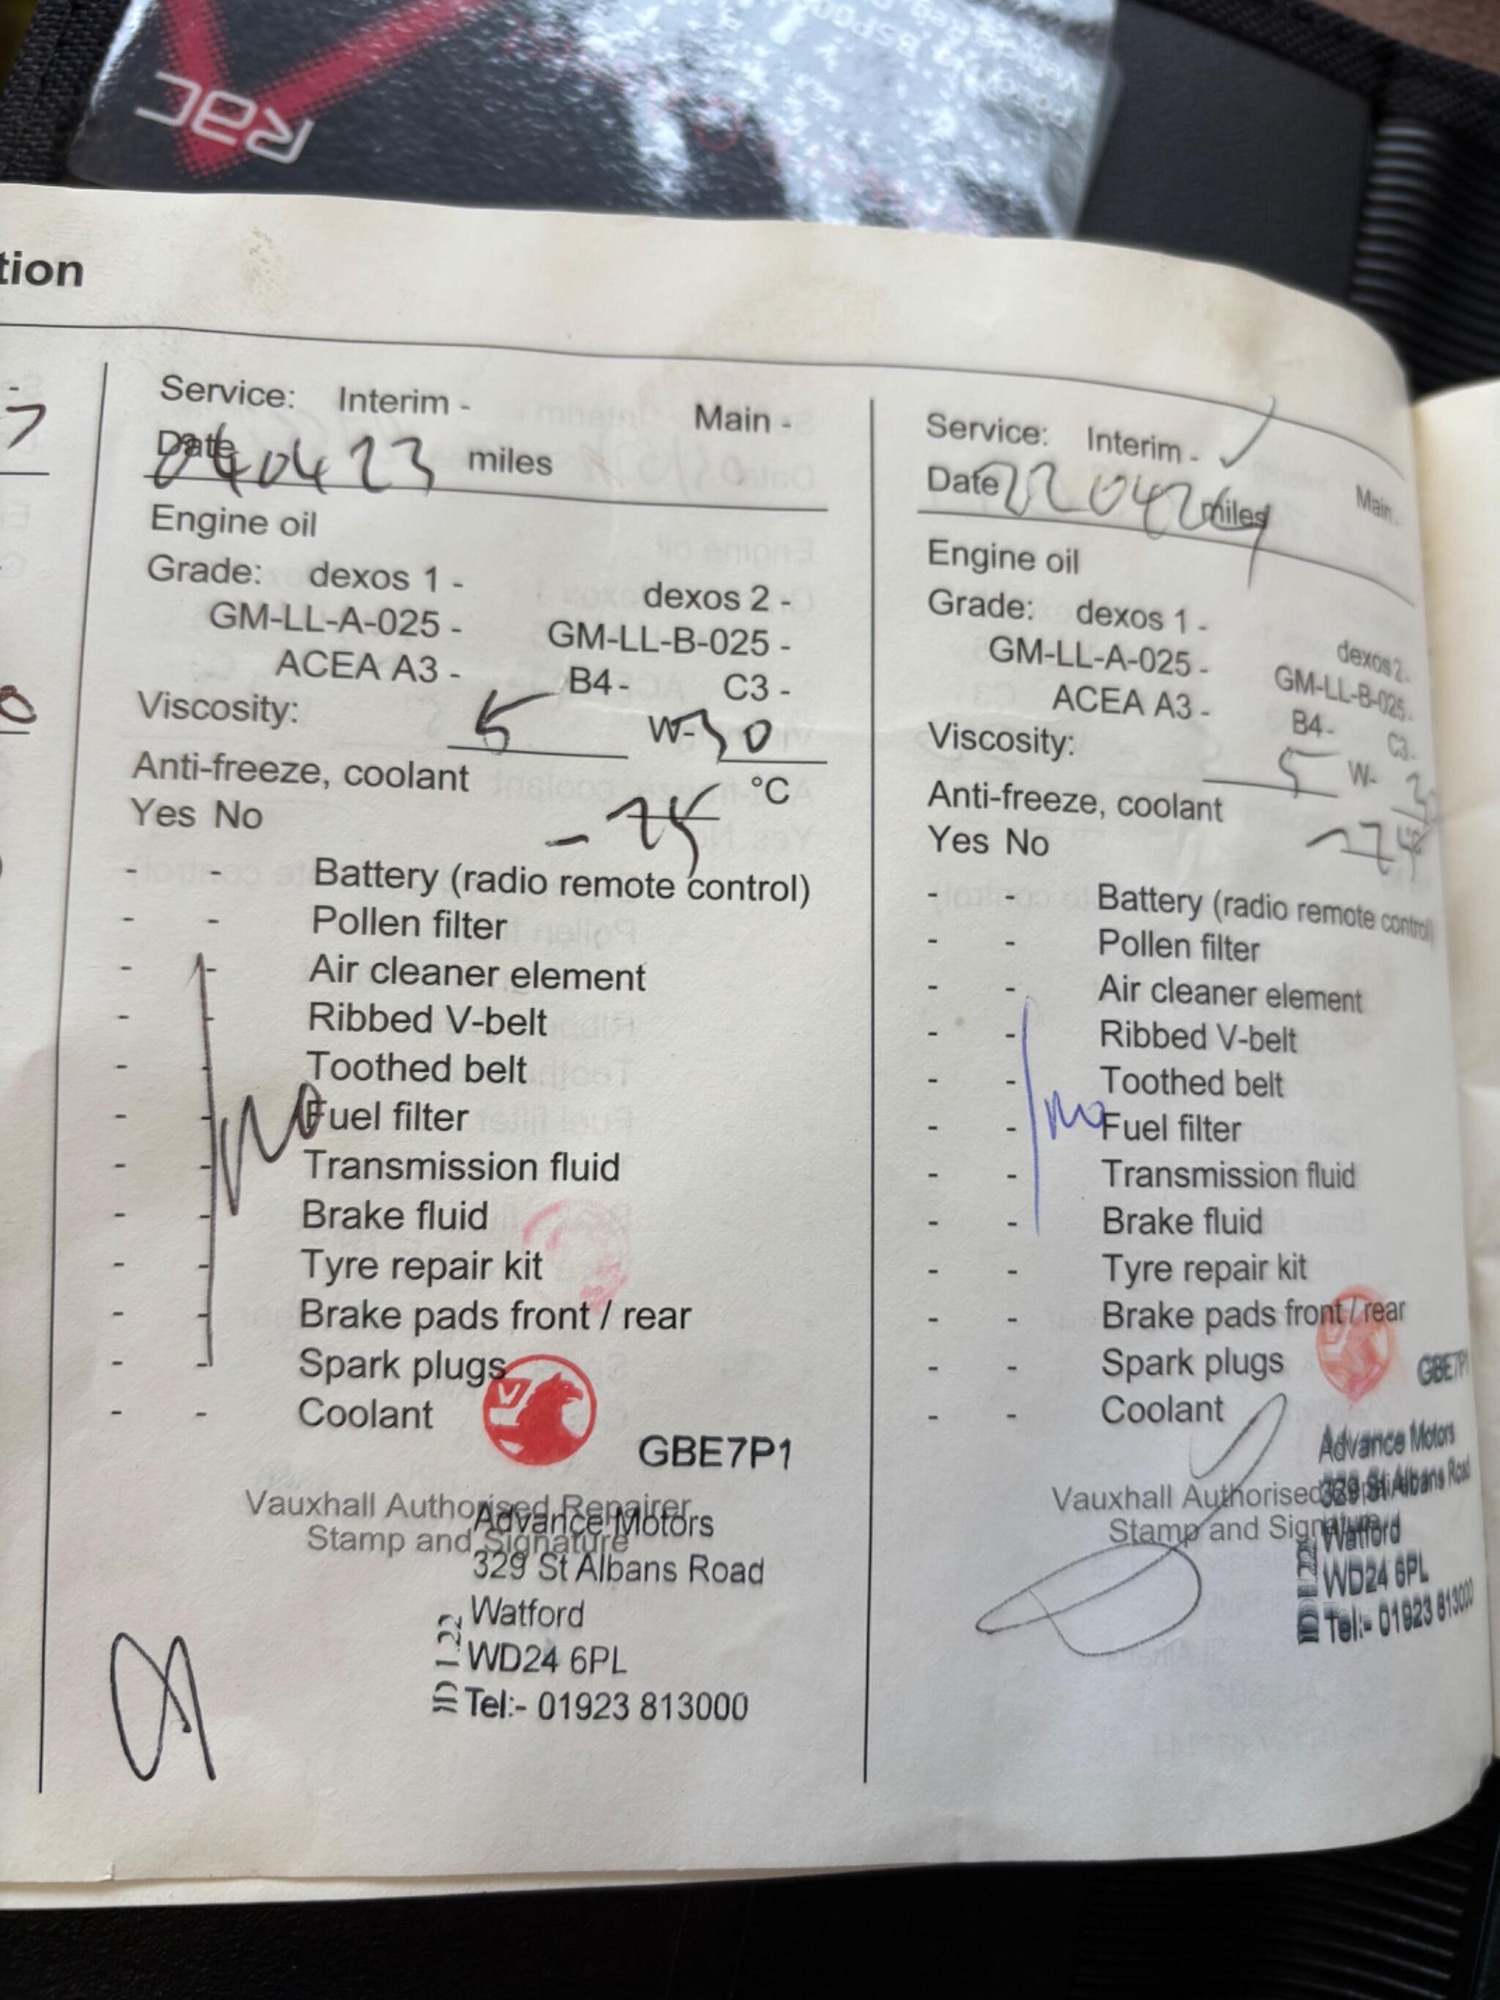 Rac
tion
7
Service: Interim -
Main -
Date 04 04 23 miles
Engine oil
Grade: dexos 1 -
dexos 2 -
GM-LL-A-025 -
GM-LL-B-025 -
ACEA A3 -
B4 -
C3 -
Viscosity: 5 W-30
Anti-freeze, coolant
°C
Yes No
Battery (radio remote control)
Pollen filter
Air cleaner element
Ribbed V-belt
Toothed belt
NO Fuel filter
Transmission fluid
Brake fluid
Tyre repair kit
Brake pads front / rear
Spark plugs
Coolant
GBE7P1
Vauxhall Authorised Repairer
Stamp and Signature
Advance Motors
329 St Albans Road
Watford
WD24 6PL
Tel:- 01923 813000
ID 1.22
Service: Interim - ✓
Main -
Date 22 04 24 miles
Engine oil
Grade: dexos 1 -
dexos 2 -
GM-LL-A-025 -
GM-LL-B-025 -
ACEA A3 -
B4 -
C3 -
Viscosity: 5 W- 30
Anti-freeze, coolant
°C
Yes No
Battery (radio remote control)
Pollen filter
Air cleaner element
Ribbed V-belt
Toothed belt
NO Fuel filter
Transmission fluid
Brake fluid
Tyre repair kit
Brake pads front / rear
Spark plugs
Coolant
GBE7P1
Vauxhall Authorised
Stamp and Signature
Advance Motors
329 St Albans Road
Watford
WD24 6PL
Tel:- 01923 813000
ID 1.22